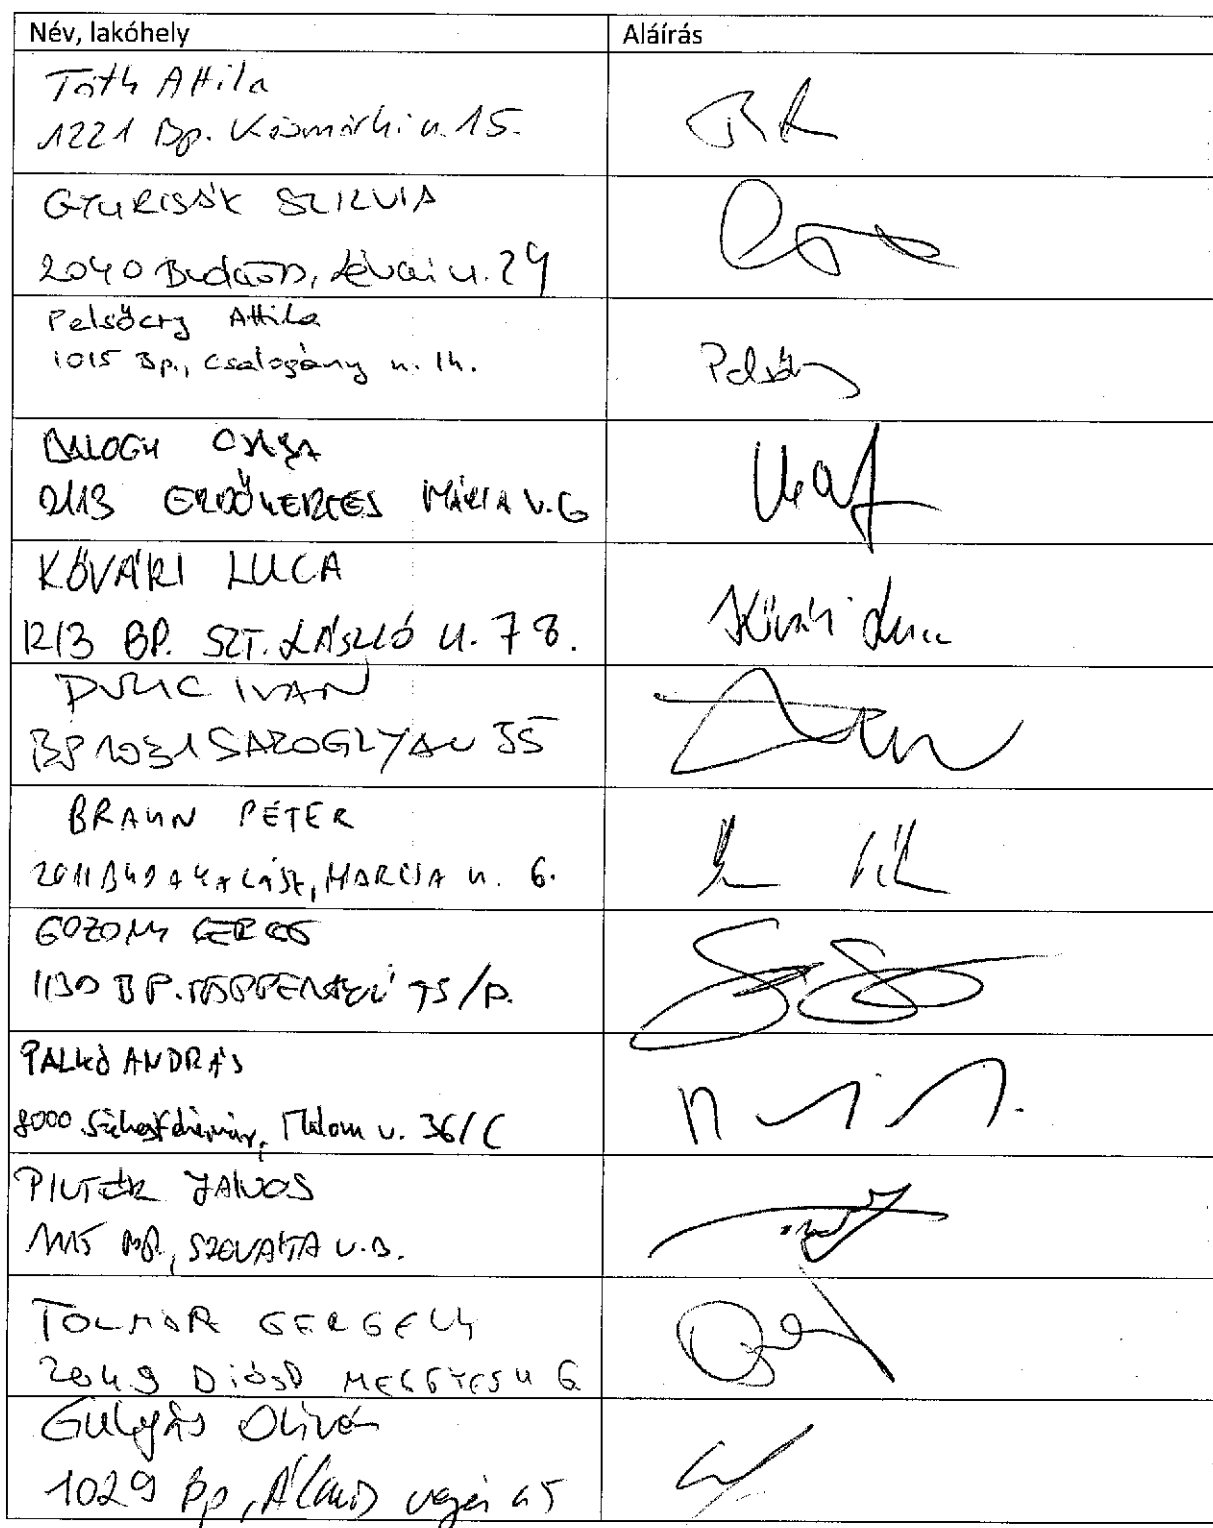 Név, lakóhely Aláírás
Tóth Attila
1221 Bp. Késmárki u. 15.
GYURISÁK SZILVIA
2040 Budaörs, Lévai u. 29
Pelsőczy Attila
1015 Bp., Csalogány u. 14.
Pelsőczy
BALOGH CSABA
2113 ERDŐKERTES MÁRIA U. 6
KŐVÁRI LUCA
1213 BP. SZT. LÁSZLÓ U. 78.
Kővári Luca
IVAN
BP 1031 35
BRAUN PÉTER
2011 BUDAKALÁSZ, U. 6.
GERGŐ
1130 BP. 75/A.
PALKÓ ANDRÁS
8000 Székesfehérvár, Malom u. 36/C
PINTÉR JÁNOS
1115 BP., SZOVÁTA U.
TOLMÁR GERGELY
2049 DIÓSD MEGGYES U 6
Gulyás Olivér
1029 Bp,